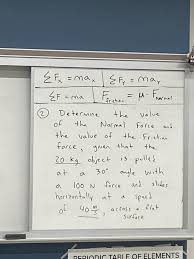 ΣFx = max ΣFy = may
ΣF = ma Ffriction = μ·Fnormal
② Determine the value
of the Normal Force and
the value of the Friction
force, given that the
20 kg object is pulled
at a 30° angle with
a 100 N force and slides
horizontally at a speed
of 40 m/s, across a flat
surface
PERIODIC TABLE OF ELEMENTS